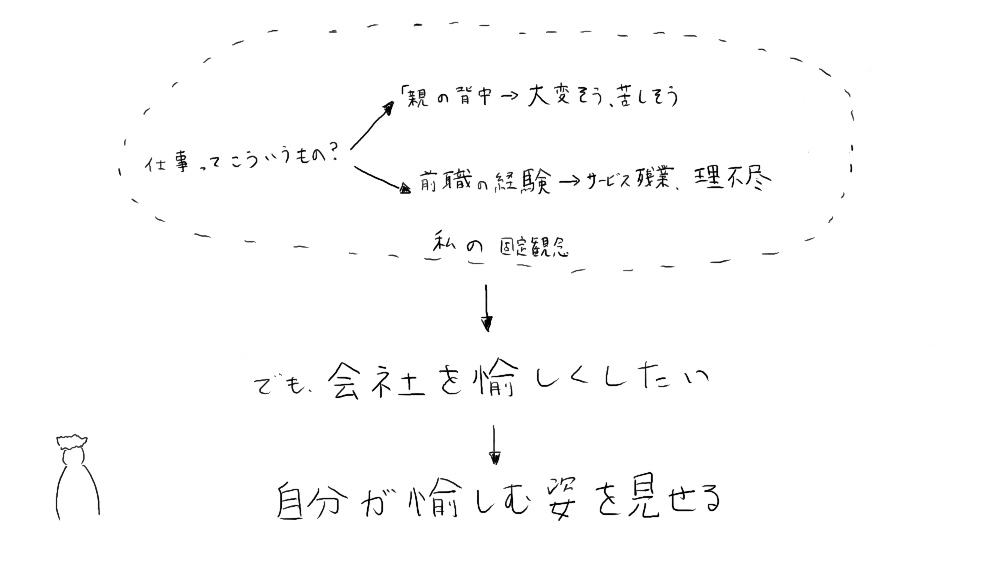 「親の背中→大変そう、苦しそう
仕事ってこういうもの?
前職の経験→サービス残業、理不尽
私の固定観念
でも、会社を愉しくしたい
自分が愉しむ姿を見せる